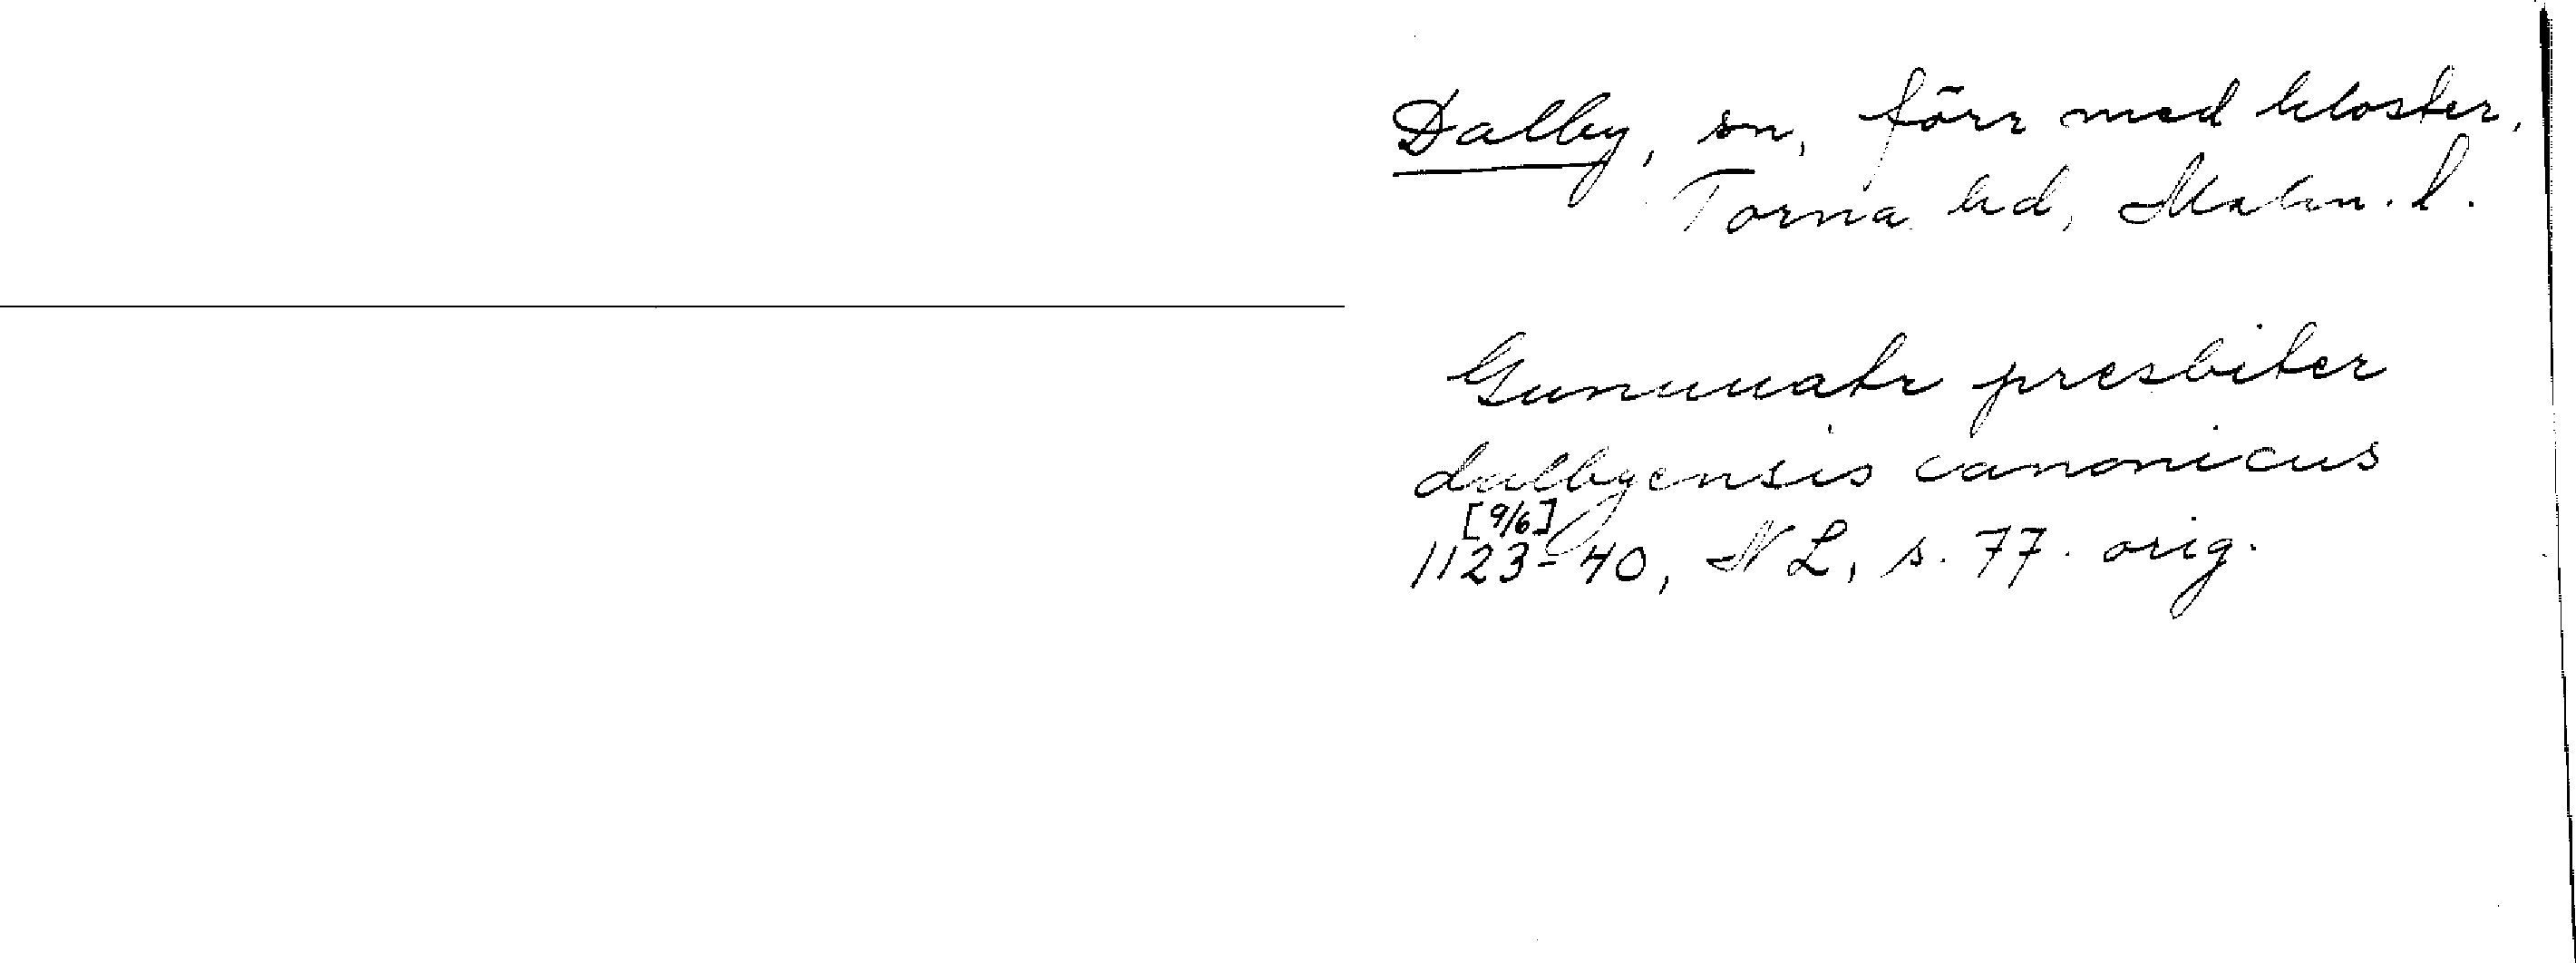 Dalby, sn, förr med kloster,
Torna hd, Malm. l.
Gunuuatr presbiter
dalbyensis canonicus
[9/6]
1123-40, NL, s. 77. orig.